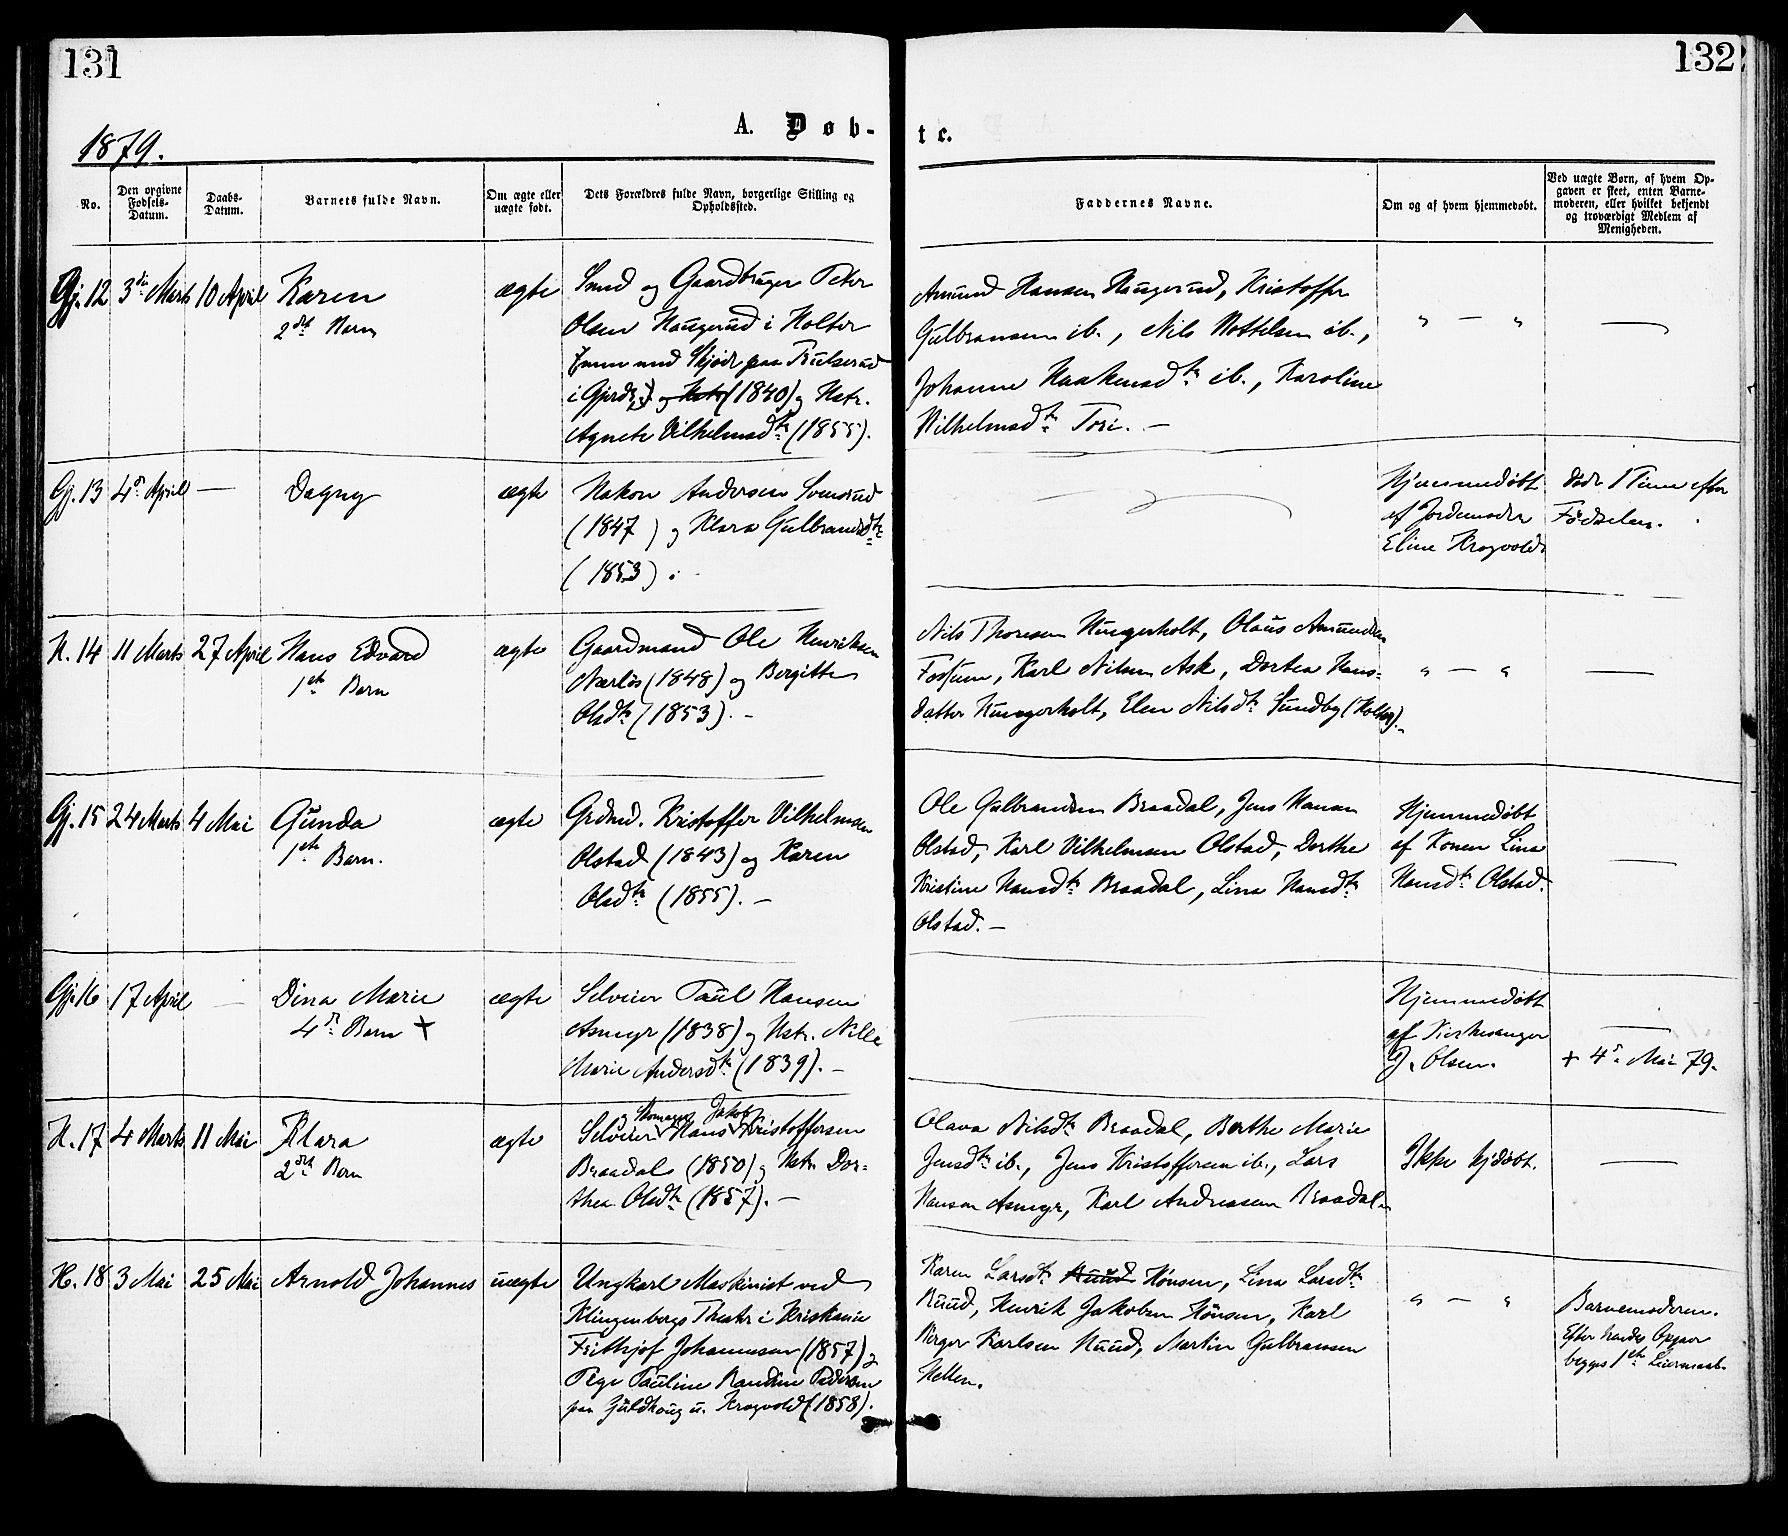 131
132
A. Døb-
te.
1879.
No.
Den opgivne Fødsels-Datum.
Daabs-Datum.
Barnets fulde Navn.
Om ægte eller uægte født.
Dets Forældres fulde Navn, borgerlige Stilling og Opholdssted.
Faddernes Navne.
Om og af hvem hjemmedøbt.
Ved uægte Børn, af hvem Opgaven er skeet, enten Barnemoderen, eller hvilket bekjendt og troværdigt Medlem af Menigheden.
Gj. 12 3die Marts 10 April Karen ægte
2det Barn
Smed og Gaardbruger Peter
Olsen Haugerud i Holter
med Skjøde paa Trulserud
i Gjerd. og Hstr (1840) og Hstr.
Agnete Vilhelmsdtr (1855).
Amund Hansen Haugerud, Kristoffer
Gulbransen ib., Nils ib.,
Johanne Haakensdtr ib., Karoline
Vilhelmsdtr Tosi. —
" — "
—
Gj. 13 4de April — Dagny ægte
Hakon Andersen
(1847) og Klara Gulbrandsdtr
(1853).
Hjemmedøbt
af Jordemoder
Eline Krogvold
Døde 1 Time efter
Fødselen.
H. 14 11 Marts 27 April Hans Edvard ægte
1ste Barn
Gaardmand Ole Henriksen
Nærløs (1848) og Bergitte
Olsdtr (1853). —
Nils Thoresen Hungerholt, Olaus Amundsen
Fossum, Karl Nilsen Ask, Dortea Hans-
datter Hungerholt, Elen Nilsdtr Sundby (Holter).
" — "
—
Gj. 15 24 Marts 4 Mai Gunda ægte
1ste Barn.
Grdmd. Kristoffer Vilhelmsen
Olstad (1843) og Karen
Olsdtr (1855). —
Ole Gulbrandsen Braadal, Jens Hansen
Olstad, Karl Vilhelmsen Olstad, Dorthe
Kristine Hansdtr Braadal, Lina Hansdtr
Olstad. —
Hjemmedøbt
af Konen Lina
Hansdtr Olstad.
—
Gj. 16 17 April — Dina Marie ægte
4de Barn +
Selveier Paul Hansen
Asmyr (1838) og Hstr. Nille
Marie Andersdtr (1839). —
Hjemmedøbt
af Kirkesanger
J. Olsen.
—
+ 4de Mai 79.
H. 17 4 Marts 11 Mai Klara ægte
2det Barn
Skomager Jakob
Selveier Hans Kristoffersen
Braadal (1850) og Hstr. Dor-
thea Olsdtr (1857). —
Olava Nilsdtr Braadal, Berthe Marie
Jensdtr ib., Jens Kristoffersen ib., Lars
Hansen Asmyr, Karl Andreassen Braadal.
Ikke hjdøbt.
—
H. 18 3 Mai 25 Mai Arnold Johannes uægte
Ungkarl Maskinist ved
Klingenbergs Theater i Kristiania
Frithjof Johannesen (1857) og
Pige Pauline Randine Pedersen
paa Guldhoug u. Krogvold (1858).
Karen Larsdtr Ruud Hønsen, Lina Larsdtr
Ruud, Henrik Jakobsen Hønsen, Karl
Birger Karlsen Ruud, Martin Gulbransen
Hellen.
" — "
Barnemoderen.
Efter hendes Opgave
begges 1ste Leiermaal.